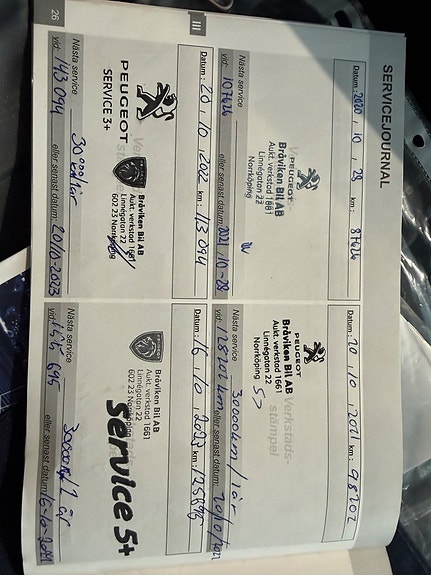 SERVICEJOURNAL
Datum: 2020, 10, 28 km: 87626
PEUGEOT
Bråviken Bil AB
Aukt. verkstad 1661
Linnégatan 22
Norrköping
Nästa service
vid: 107626 eller senast datum: 2021, 10-28
Datum: 20, 10, 2021 98202
Verkstads-
stämpel
PEUGEOT
Bråviken Bil AB
Aukt. verkstad 1661
Linnégatan 22
Norrköping
Nästa service 30000km/1år
vid: 128202km eller senast datum: 20/10/2022
III
Datum: 20, 10, 2022 km: 113094
PEUGEOT
SERVICE 3+
Bråviken Bil AB
Aukt. verkstad 1661
Linnégatan 22
602 23 Norrköping
Nästa service 30000/1år
vid: 143094 eller senast datum: 20/10-2023
Datum: 16, 10, 2023 km:
Bråviken Bil AB
Aukt. verkstad 1661
Linnégatan 22
602 23 Norrköping
Service 5+
Nästa service
vid: eller senast datum:
26